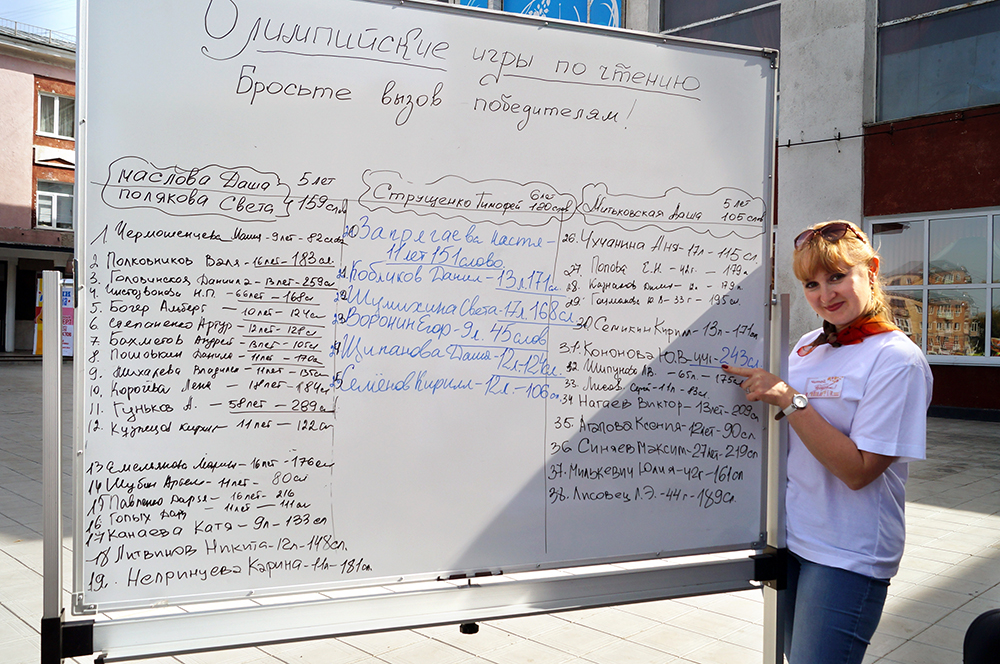 Олимпийские игры по чтению
Бросьте вызов победителям!
маслова Даша 5 лет
полякова Света 159 слов
1. Чермошенцева Маша - 9 лет - 82 слова
2 Полковников Валя - 16 лет - 183 сл.
3 Головинская Данила 2 - 13 лет - 259 сл
4 Н.П. - 66 лет - 168 сл
5 Богер Альберт - 10 лет - 124 сл
6 Степаненко Артур - 12 лет - 128 сл
7 Бахметов Андрей - 13 лет - 105 сл
8 Пошовкин Данила - 11 лет - 170 сл
9 Михалева - 11 лет - 135 сл
10 Королёва Лена - 184 сл
11 Гуньков А. - 58 лет - 289 сл
12. Кузнецов Кирилл 11 лет - 122 сл
13 Емельянова Мария - 16 лет - 176 сл
14 Шубин Арсен - 11 лет - 80 сл
15 Павленко Дарья - 16 лет - 216
16 Голых - 11 лет - 111 сл
17 Канаева Катя - 9 л - 133 сл
18 Литвинов Никита - 12 л - 148 сл.
19. Непринцева Карина - 11 л - 181 сл.
Струщенко Тимофей 6 лет
120 слов
20 Запрягаева Настя -
11 лет 151 слово
21 Кобликов Данил - 13 л 171 сл
22 Шулихина Света - 17 л. 168 сл
23 Воронин Егор - 9 л. 45 слов
24 Щипанова Даша - 12 л - 124 сл
25 Семёнов Кирилл - 12 л. - 106 сл.
Митьковская Даша 5 лет
105 слов
26. Чучанина Аня - 17 л - 115 сл
27. Попова Е.Н - 42 г. - 179 л
28 - 179 л
29. Ю В - 33 г - 195 сл.
30 Семикин Кирилл - 13 л - 171 сл
31. Кононова Ю.В - 44 г - 243 сл
32 Шипунов В. - 65 л - 175 сл
33 Лисов - 11 л
34 Натаев Виктор - 13 лет - 209 сл
35. Агапова Ксения - 12 лет - 90 сл
36 Синяев Максим - 27 лет - 219 сл
37. Милькевич Юлия - 42 г - 161 сл
38. Лисовец Л.Э. - 44 г - 189 сл.